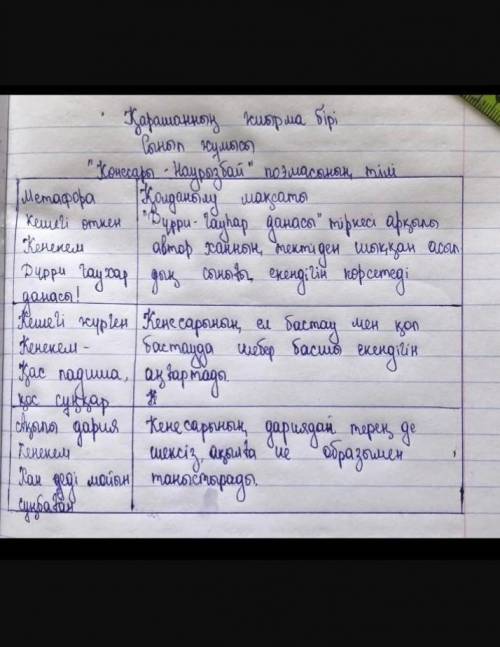 Қарашаның жиырма бірі
Сынып жұмысы
"Кенесары - Наурызбай" поэмасының тілі
Метафора
Қолданылу мақсаты
Кешегі өткен
Кенекем
Дүрри гауһар
данасы!
"Дүрри-гауһар данасы" тіркесі арқылы
автор ханның тектіден шыққан асыл
дың сынығы екендігін көрсетеді
Кешегі жүрген
Кенекем -
Қас падишa,
қос сұңқар
Кенесарының ел бастау мен қол
бастауда шебер басшы екендігін
аңғартады.
Ақылы дария
Кенекем
Хан деді мойын
сұнбаған
Кенесарының дариядай терең де
шексіз ақылға ие образымен
таныстырады.